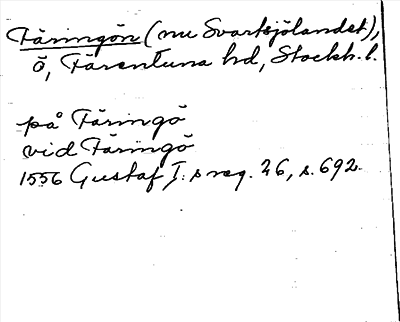 Färingön (nu Svartsjölandet),
ö, Färentuna hd, Stockh. l.
på Färingö
vid Färingö
1556 Gustaf I:s reg. 26, s. 692.